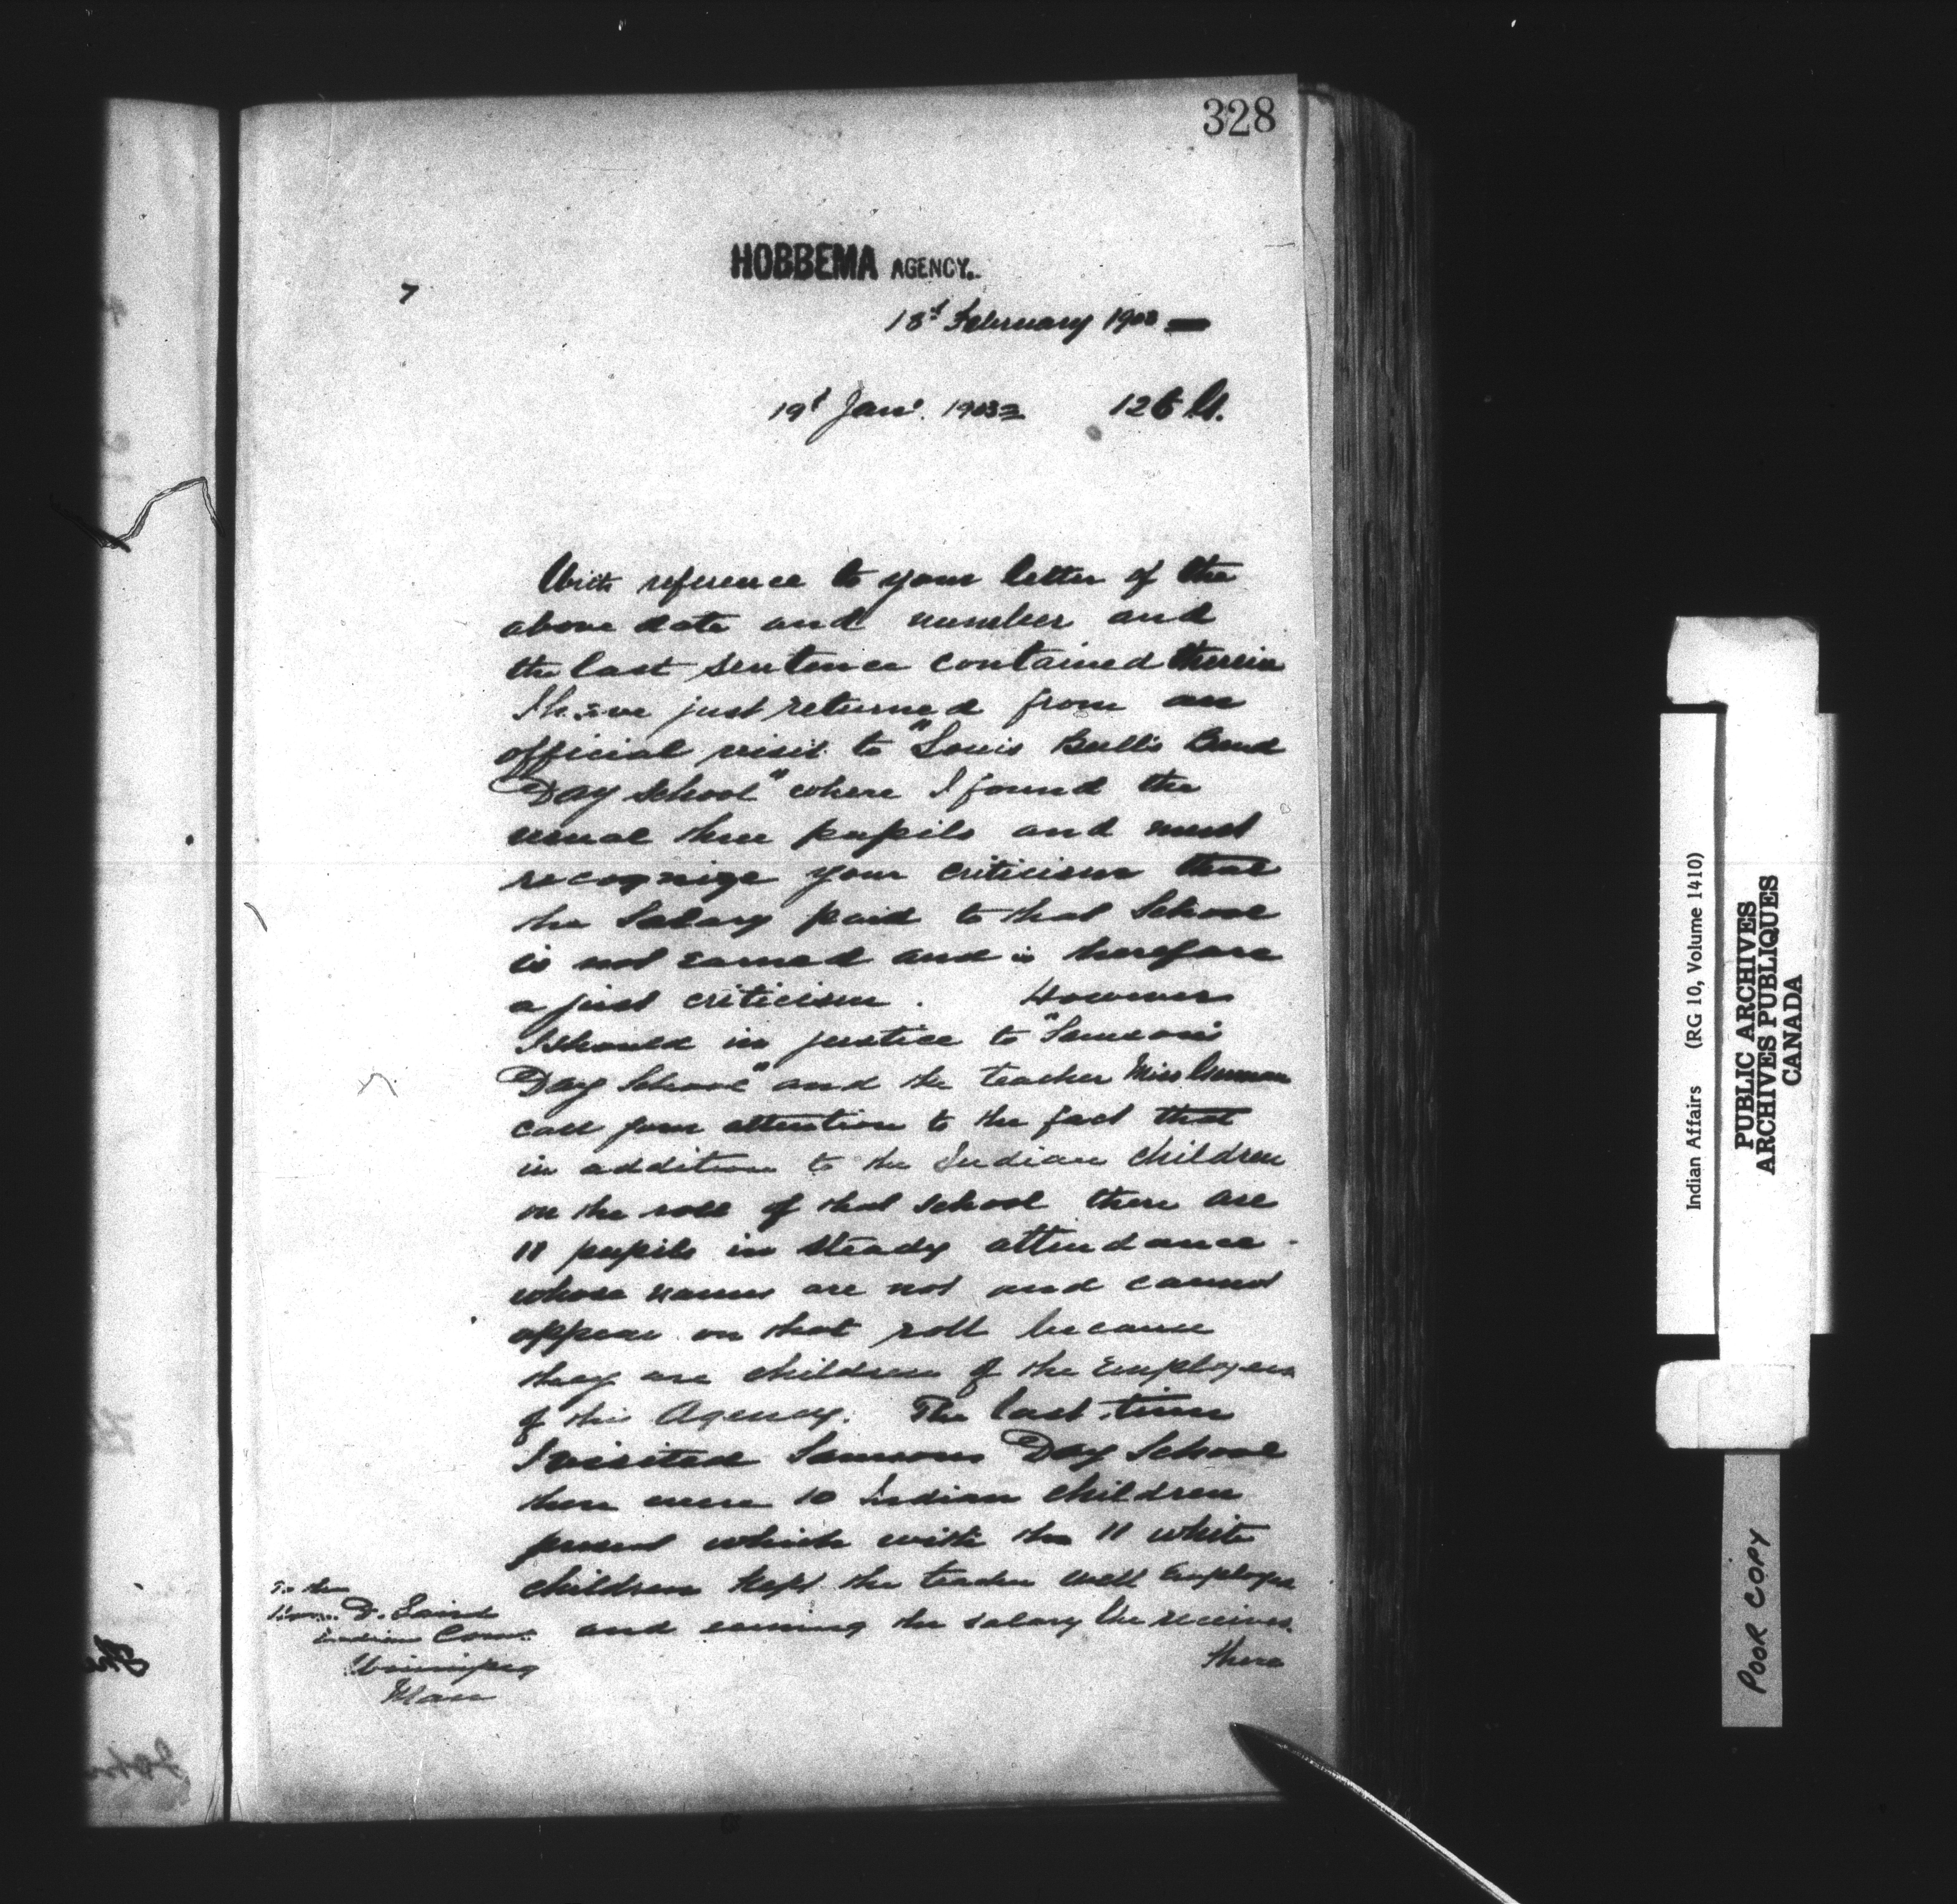 328
HOBBEMA AGENCY.
18th February 1903
19th Jany. 1903 126
With reference to your letter of the
above date and number and
the last sentence contained therein
I have just returned from an
official visit to "Louis Bull's Band
Day School" where I found the
usual three pupils and must
recognize your criticism that
the salary paid to that School
is not earned and is therefore
a just criticism. However
I should in justice to "Samson's
Day School" and the teacher Miss
call your attention to the fact that
in addition to the Indian children
on the roll of that school there are
11 pupils in steady attendance
whose names are not and cannot
appear on that roll because
they are children of the Employees
of this Agency. The last time
I visited Samsons Day School
there were 10 Indian children
present which with the 11 white
children kept the teacher well employed
and earning the salary she receives.
there
To the
Hon. D. Laird
Indian Com.
Winnipeg
Man
Indian Affairs (RG 10, Volume 1410)
PUBLIC ARCHIVES
ARCHIVES PUBLIQUES
CANADA
POOR COPY